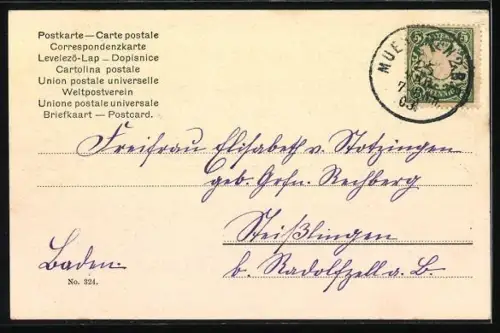 Postkarte — Carte postale
Correspondenzkarte
Levelező-Lap — Dopisnice
Cartolina postale
Union postale universelle
Weltpostverein
Unione postale universale
Briefkaart — Postcard.
5
Freifrau Elisabeth v. Stotzingen
geb. Gräfin Rechberg
Steißlingen
Baden.
b. Radolfzell a. B
No. 324.